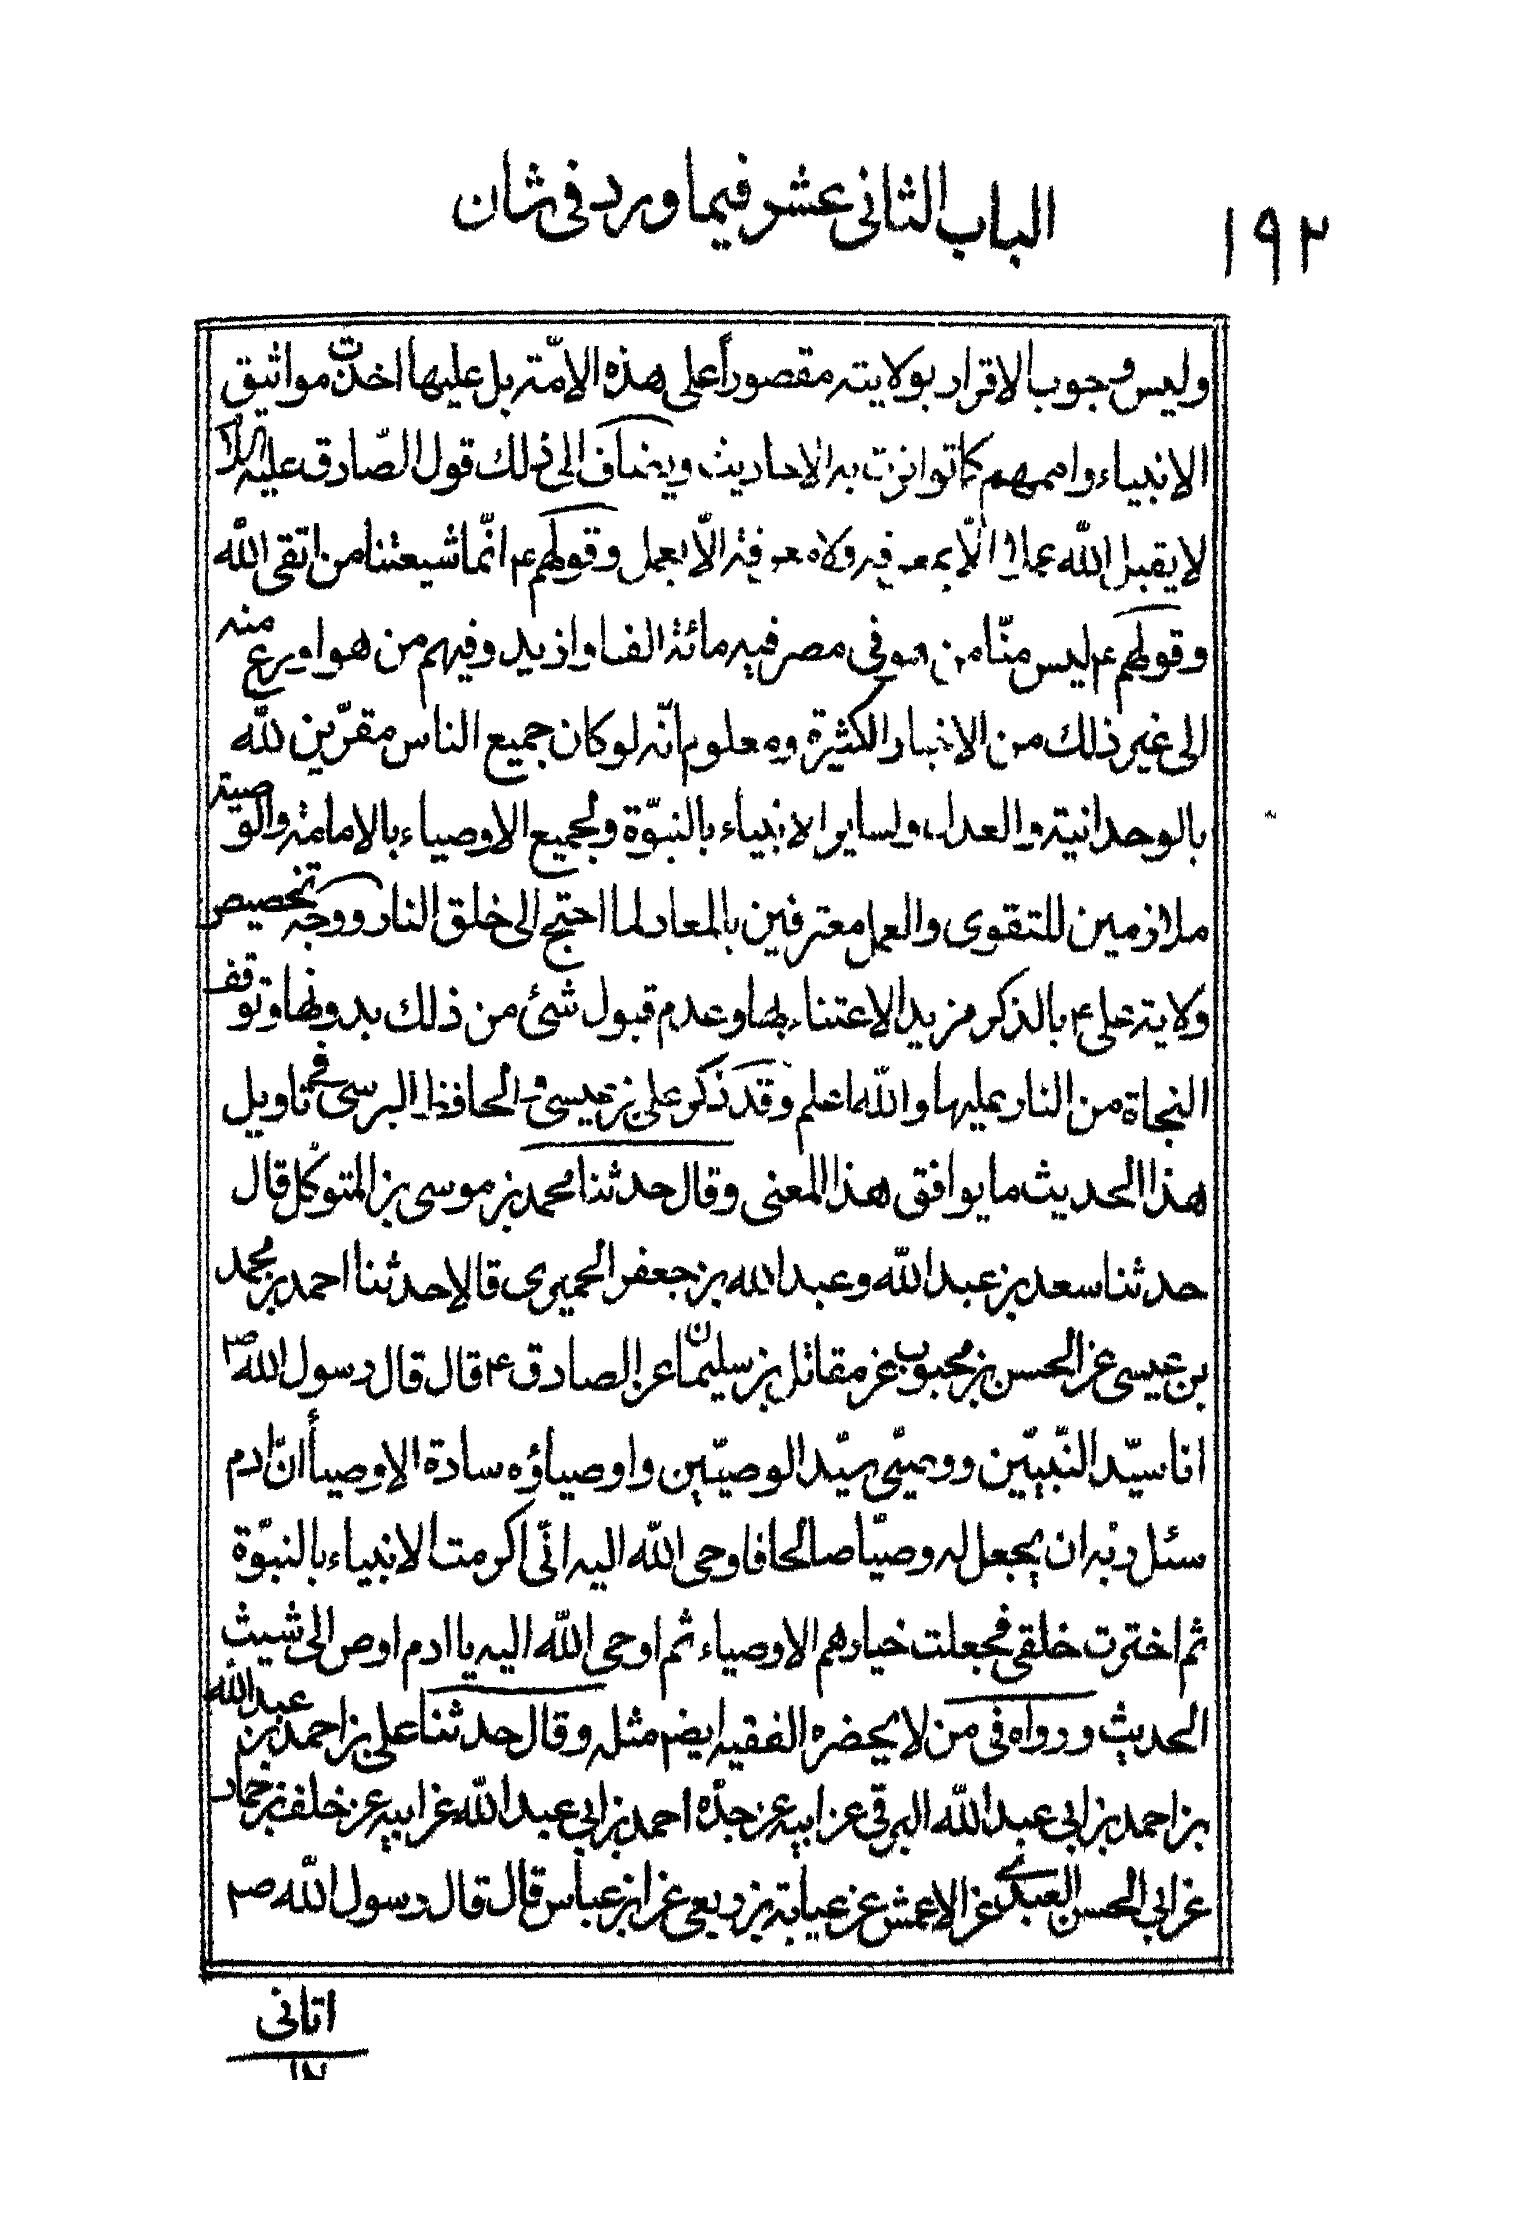 ١٩٢
الباب الثانى عشر فيما ورد فى شان
وليس وجوب الاقرار بولايته مقصوراً على هذه الامّة بل عليها اخذت مواثيق
الانبياء واممهم كما تواترت به الاحاديث ويضاف الى ذلك قول الصّادق عليه السلام
لا يقبل الله عملا الّا بمعرفة ولا معرفة الّا بعمل وقولهم ع انّما شيعتنا من اتقى الله
وقولهم ع ليس منّا من هو فى مصر فيه مائة الف او ازيد وفيهم من هو اورع منه
الى غير ذلك من الاخبار الكثيرة ومعلوم انّه لو كان جميع الناس مقرّين لله
بالوحدانية والعدل ولساير الانبياء بالنبوّة ولجميع الاوصياء بالامامة والوصية
ملازمين للتقوى والعمل معترفين بالمعاد لما احتج الى خلق النار ووجه تخصيص
ولايته على ع بالذكر مزيد الاعتناء بها وعدم قبول شئ من ذلك بدونها وتوقف
النجاة من النار عليها والله اعلم وقد ذكر على بن عيسى و الحافظ البرسى فى تاويل
هذا الحديث ما يوافق هذا المعنى وقال حدثنا محمد بن موسى بن المتوكل قال
حدثنا سعد بن عبد الله وعبد الله بن جعفر الحميرى قالا حدثنا احمد بن محمد
بن عيسى عن الحسن بن محبوب عن مقاتل بن سليمان عن الصادق ع قال قال رسول الله ص
انا سيّد النّبيّين ووصيّى سيّد الوصيّين واوصياؤه سادة الاوصياء انّ ادم
سئل ربّه ان يجعل له وصيّا صالحا فاوحى الله اليه انّى اكرمت الانبياء بالنبوّة
ثم اخترت خلقى فجعلت خيارهم الاوصياء ثم اوحى الله اليه يا ادم اوص الى شيث
الحديث ورواه فى من لا يحضره الفقيه ايضم مثله وقال حدثنا على بن احمد بن عبد الله
بن احمد بن ابي عبد الله البرقى عن ابيه عن جدّه احمد بن ابي عبد الله عن ابيه عن خلف بن حماد
عن ابي الحسن العبدى عن الاعمش عن عباية بن ربعى عن ابن عباس قال قال رسول الله ص
اتانى